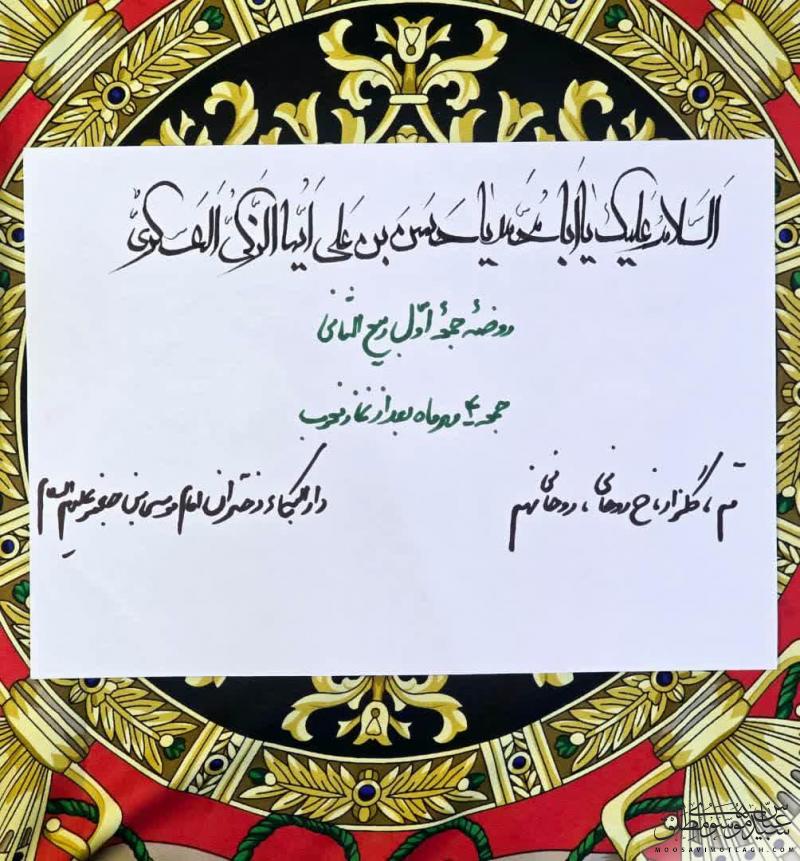 السلام علیک یا ابا محمد یا حسن بن علی ایها الزکی العسکری
روضهٔ جمعهٔ اول ربیع الثانی
جمعه ۴ مهرماه بعد از نماز مغرب
قم، گلزار، خ روحانی، روحانی نهم
دارالبکاء دختران امام موسی بن جعفر علیهم السلام
سید علیرضا موسوی مطلق
MOOSAVIMOTLAGH.COM